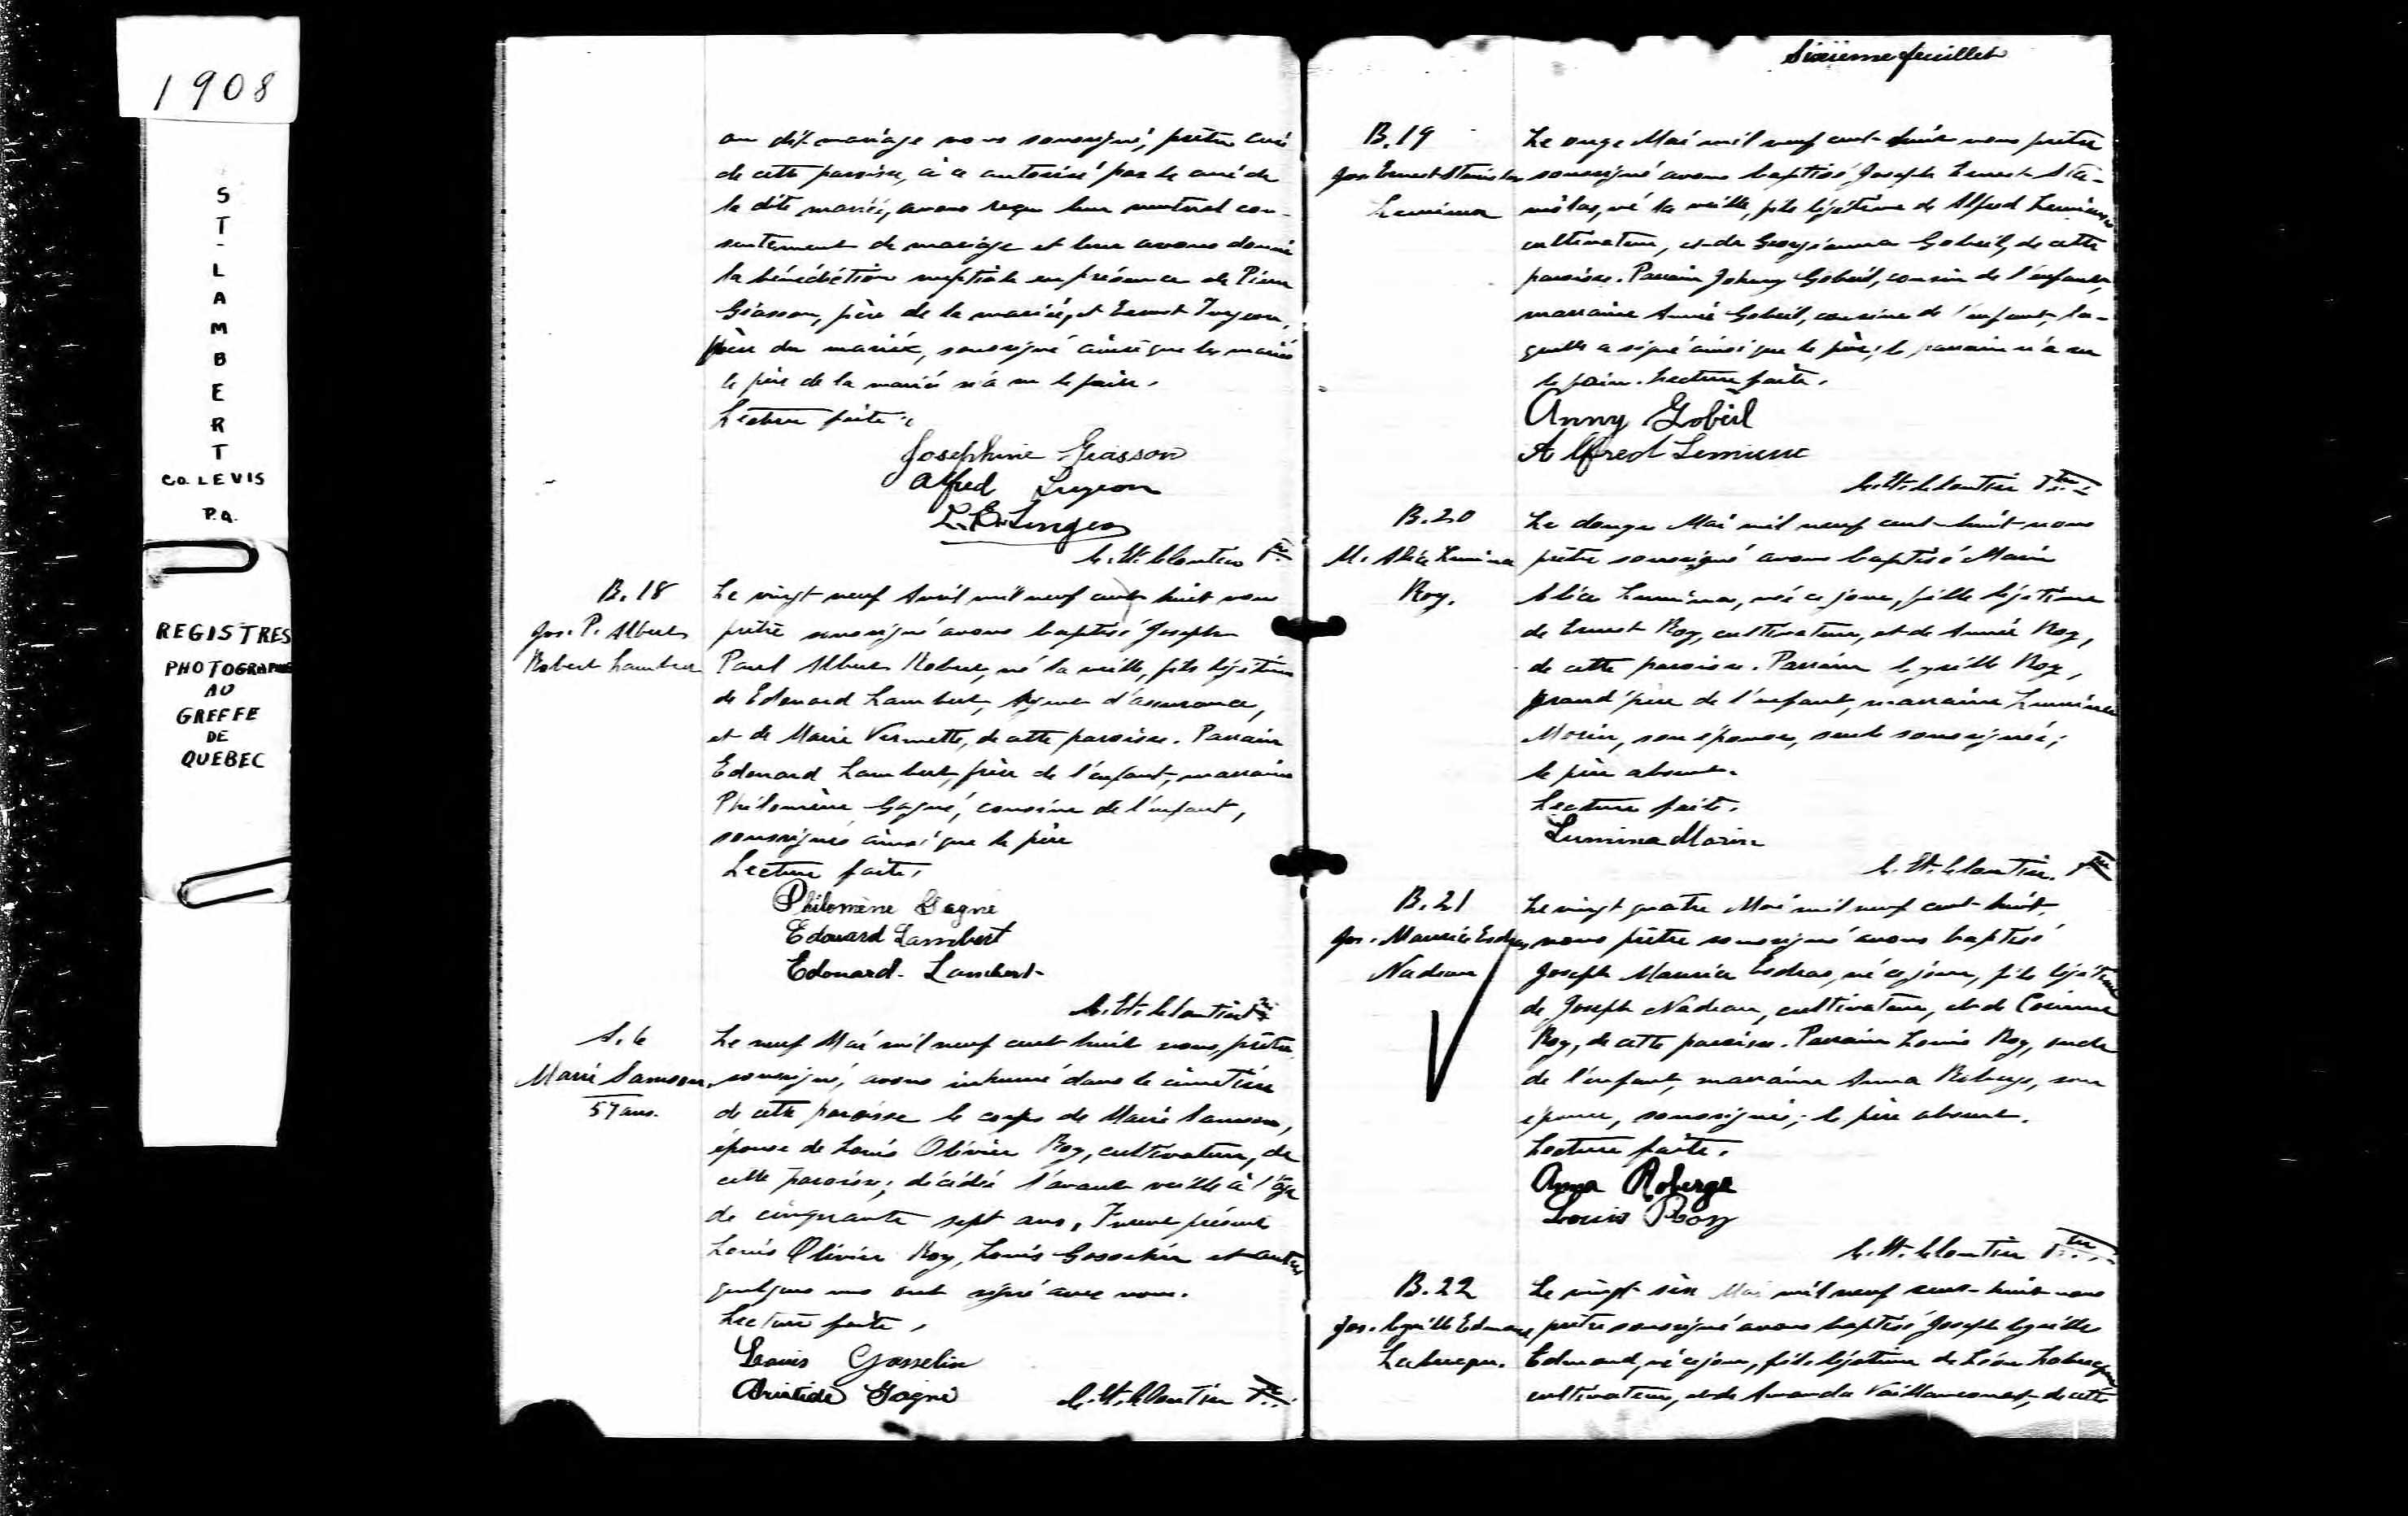 1908
ST-LAMBERT
CO. LEVIS
P.Q.
REGISTRES
PHOTOGRAPHIÉ
AU
GREFFE
DE
QUEBEC
au dit mariage nous soussigné, prêtre curé
de cette paroisse, à ce autorisé par le curé de
la dite mariée, avons reçu leur mutuel con-
sentement de mariage et leur avons donné
la bénédiction nuptiale en présence de Pierre
Giasson, père de la mariée, et Ernest Turgeon,
père du marié, soussigné ainsi que les mariés
le père de la mariée n'a su le faire.
Lecture faite.
Josephine Giasson
Alfred Turgeon
Turgeon
Cloutier Ptre
B. 18
Jos. P. Albert
Robert Lambert
Le vingt neuf Avril mil neuf cent huit nous
prêtre soussigné avons baptisé Joseph
Paul Albert Robert, né la veille, fils légitime
de Edouard Lambert, Agent d'assurance,
et de Marie Vermette, de cette paroisse. Parrain
Edouard Lambert, frère de l'enfant, marraine
Philomène Gagné, cousine de l'enfant,
soussignés ainsi que le père
Lecture faite.
Philomène Gagné
Edouard Lambert
Edouard Lambert
Cloutier Ptre
S. 6
Marie Samson
57 ans.
Le neuf Mai mil neuf cent huit nous, prêtre
soussigné, avons inhumé dans le cimetière
de cette paroisse le corps de Marie Samson,
épouse de Louis Olivier Roy, cultivateur, de
cette paroisse, décédée l'avant veille à l'âge
de cinquante sept ans. Furent présents
Louis Olivier Roy, Louis Gosselin et autres
quelques uns ont signé avec nous.
Lecture faite.
Louis Gosselin
Aristide Gagné
Cloutier Ptre
Sixième feuillet
B. 19
Jos. Ernest Stanislas
Lemieux
Le onze Mai mil neuf cent huit nous prêtre
soussigné avons baptisé Joseph Ernest Sta-
nislas, né la veille, fils légitime de Alfred Lemieux
cultivateur, et de Georgianna Gobeil, de cette
paroisse. Parrain Johnny Gobeil, cousin de l'enfant,
marraine Annie Gobeil, cousine de l'enfant, la-
quelle a signé ainsi que le père; le parrain n'a su
le faire. Lecture faite.
Anny Gobeil
Alfred Lemieux
Cloutier Ptre
B. 20
M. Alice Lumina
Roy.
Le douze Mai mil neuf cent huit nous
prêtre soussigné avons baptisé Marie
Alice Lumina, née ce jour, fille légitime
de Ernest Roy, cultivateur, et de Annie Roy,
de cette paroisse. Parrain Cyrille Roy,
grand'père de l'enfant, marraine Lumina
Morin, son épouse, seule soussignée;
le père absent.
Lecture faite.
Lumina Morin
Cloutier. Ptre
B. 21
Jos. Maurice Esdras
Nadeau
Le vingt quatre Mai mil neuf cent huit,
nous prêtre soussigné avons baptisé
Joseph Maurice Esdras, né ce jour, fils légitime
de Joseph Nadeau, cultivateur, et de Corinne
Roy, de cette paroisse. Parrain Louis Roy, oncle
de l'enfant, marraine Anna Roberge, son
épouse, soussignés; le père absent.
Lecture faite.
Anna Roberge
Louis Roy
Cloutier Ptre
B. 22
Jos. Cyrille Edmond
Labrecque.
Le vingt six Mai mil neuf cent huit nous
prêtre soussigné avons baptisé Joseph Cyrille
Edmond, né ce jour, fils légitime de Léon Labrecque
cultivateur, et de Amanda Vaillancourt, de cette